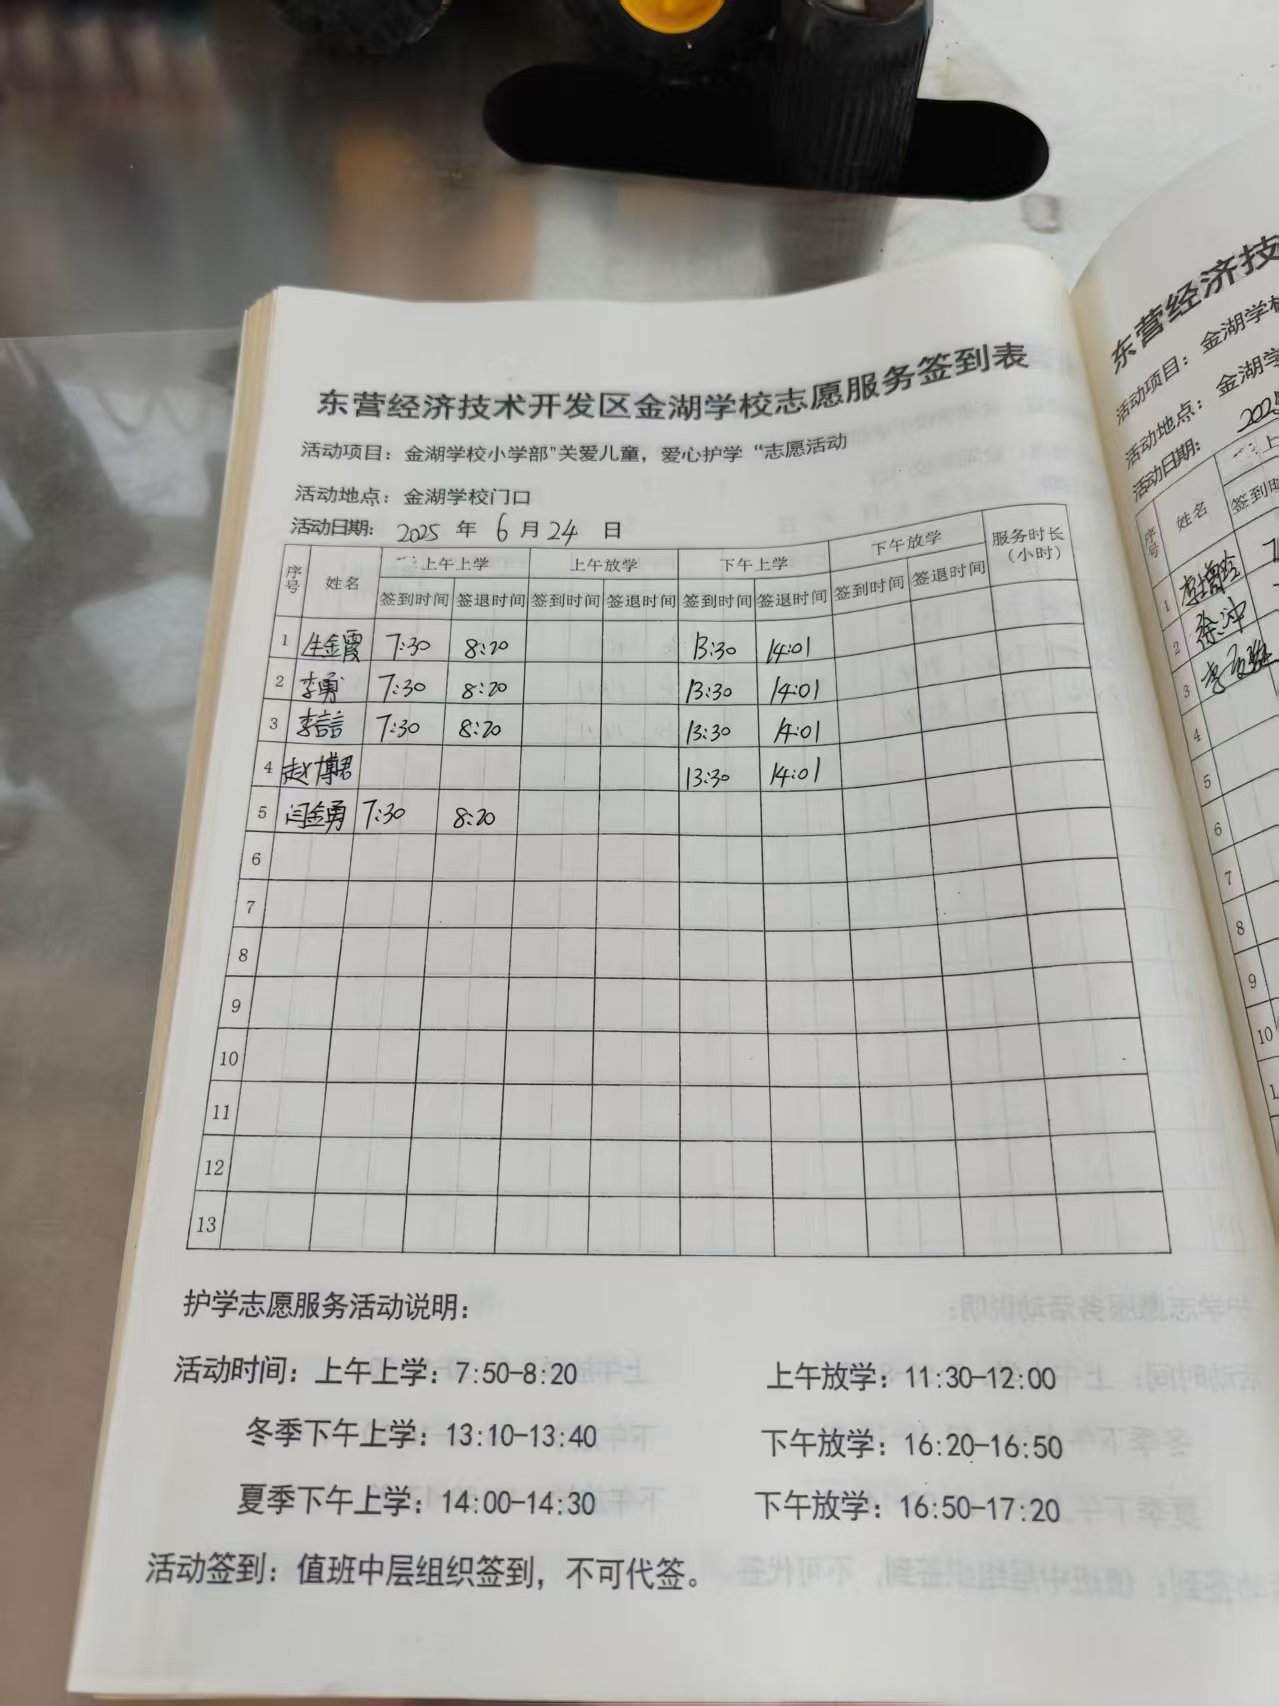 东营经济技术开发区金湖学校志愿服务签到表
活动项目：金湖学校小学部"关爱儿童，爱心护学 "志愿活动
活动地点：金湖学校门口
活动日期： 2025 年 6 月 24 日
序号 姓名 上午上学 上午放学 下午上学 下午放学 服务时长（小时）
签到时间 签退时间 签到时间 签退时间 签到时间 签退时间 签到时间 签退时间
1 生金霞 7:30 8:20 13:30 14:01
2 李勇 7:30 8:20 13:30 14:01
3 李言言 7:30 8:20 13:30 14:01
4 赵博君 13:30 14:01
5 闫金勇 7:30 8:20
6
7
8
9
10
11
12
13
护学志愿服务活动说明：
活动时间：上午上学：7:50-8:20 上午放学：11:30-12:00
冬季下午上学：13:10-13:40 下午放学：16:20-16:50
夏季下午上学：14:00-14:30 下午放学：16:50-17:20
活动签到：值班中层组织签到，不可代签。
东营经济技
活动项目：金湖学校
活动地点：金湖学
活动日期： 202
序号 姓名 上
签到时
1
2 徐冲
3
4
5
6
7
8
9
10